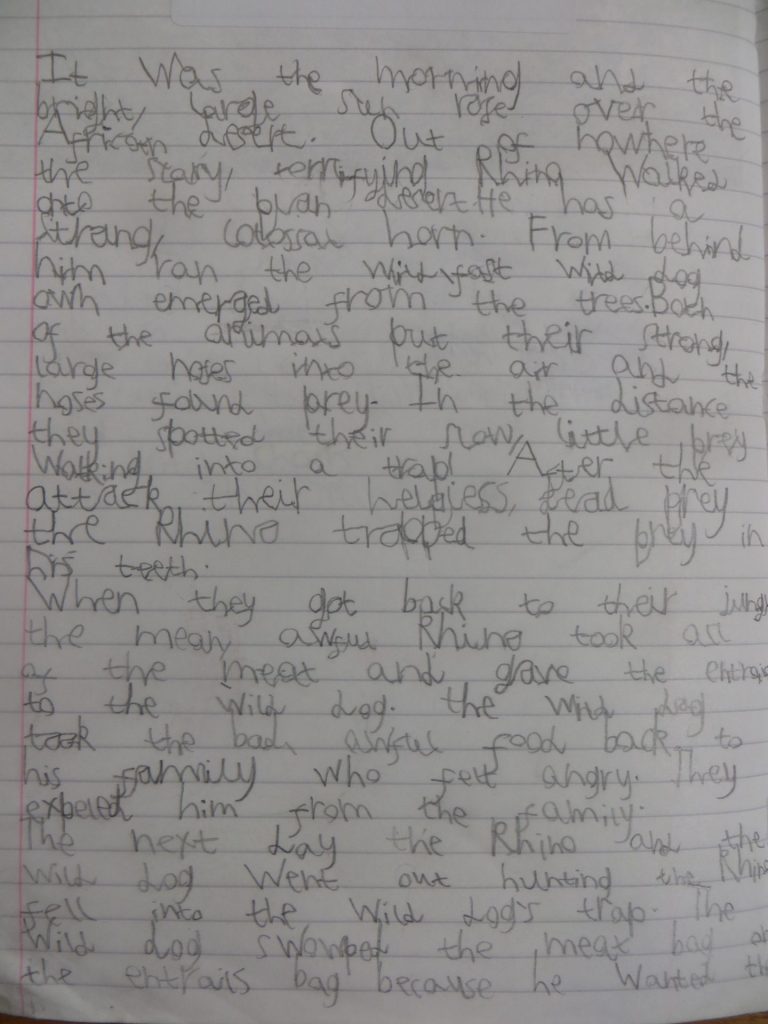 It Was the morning and the
bright, large sun rose over the
African desert. Out of nowhere
the scary, terrifying Rhino Walked
onto the desert He has a
strong, colossal horn. From behind
him ran the wild, fast wild dog
emerged from the trees. Both
of the animals put their strong,
large noses into the air and the
noses found prey. In the distance
they spotted their slow, little prey
Walking into a trap! After the
attack their helpless, dead prey
the Rhino trapped the prey in
his teeth.
When they got back to their
the mean, awful Rhino took all
of the meat and gave the
to the Wild dog. the wild dog
took the bad, awful food back to
his family who felt angry. They
him from the family.
The next day the Rhino and the
wild dog went out hunting the
fell into the wild dog's trap. The
Wild dog the meat bag
the entrails bag because he Wanted